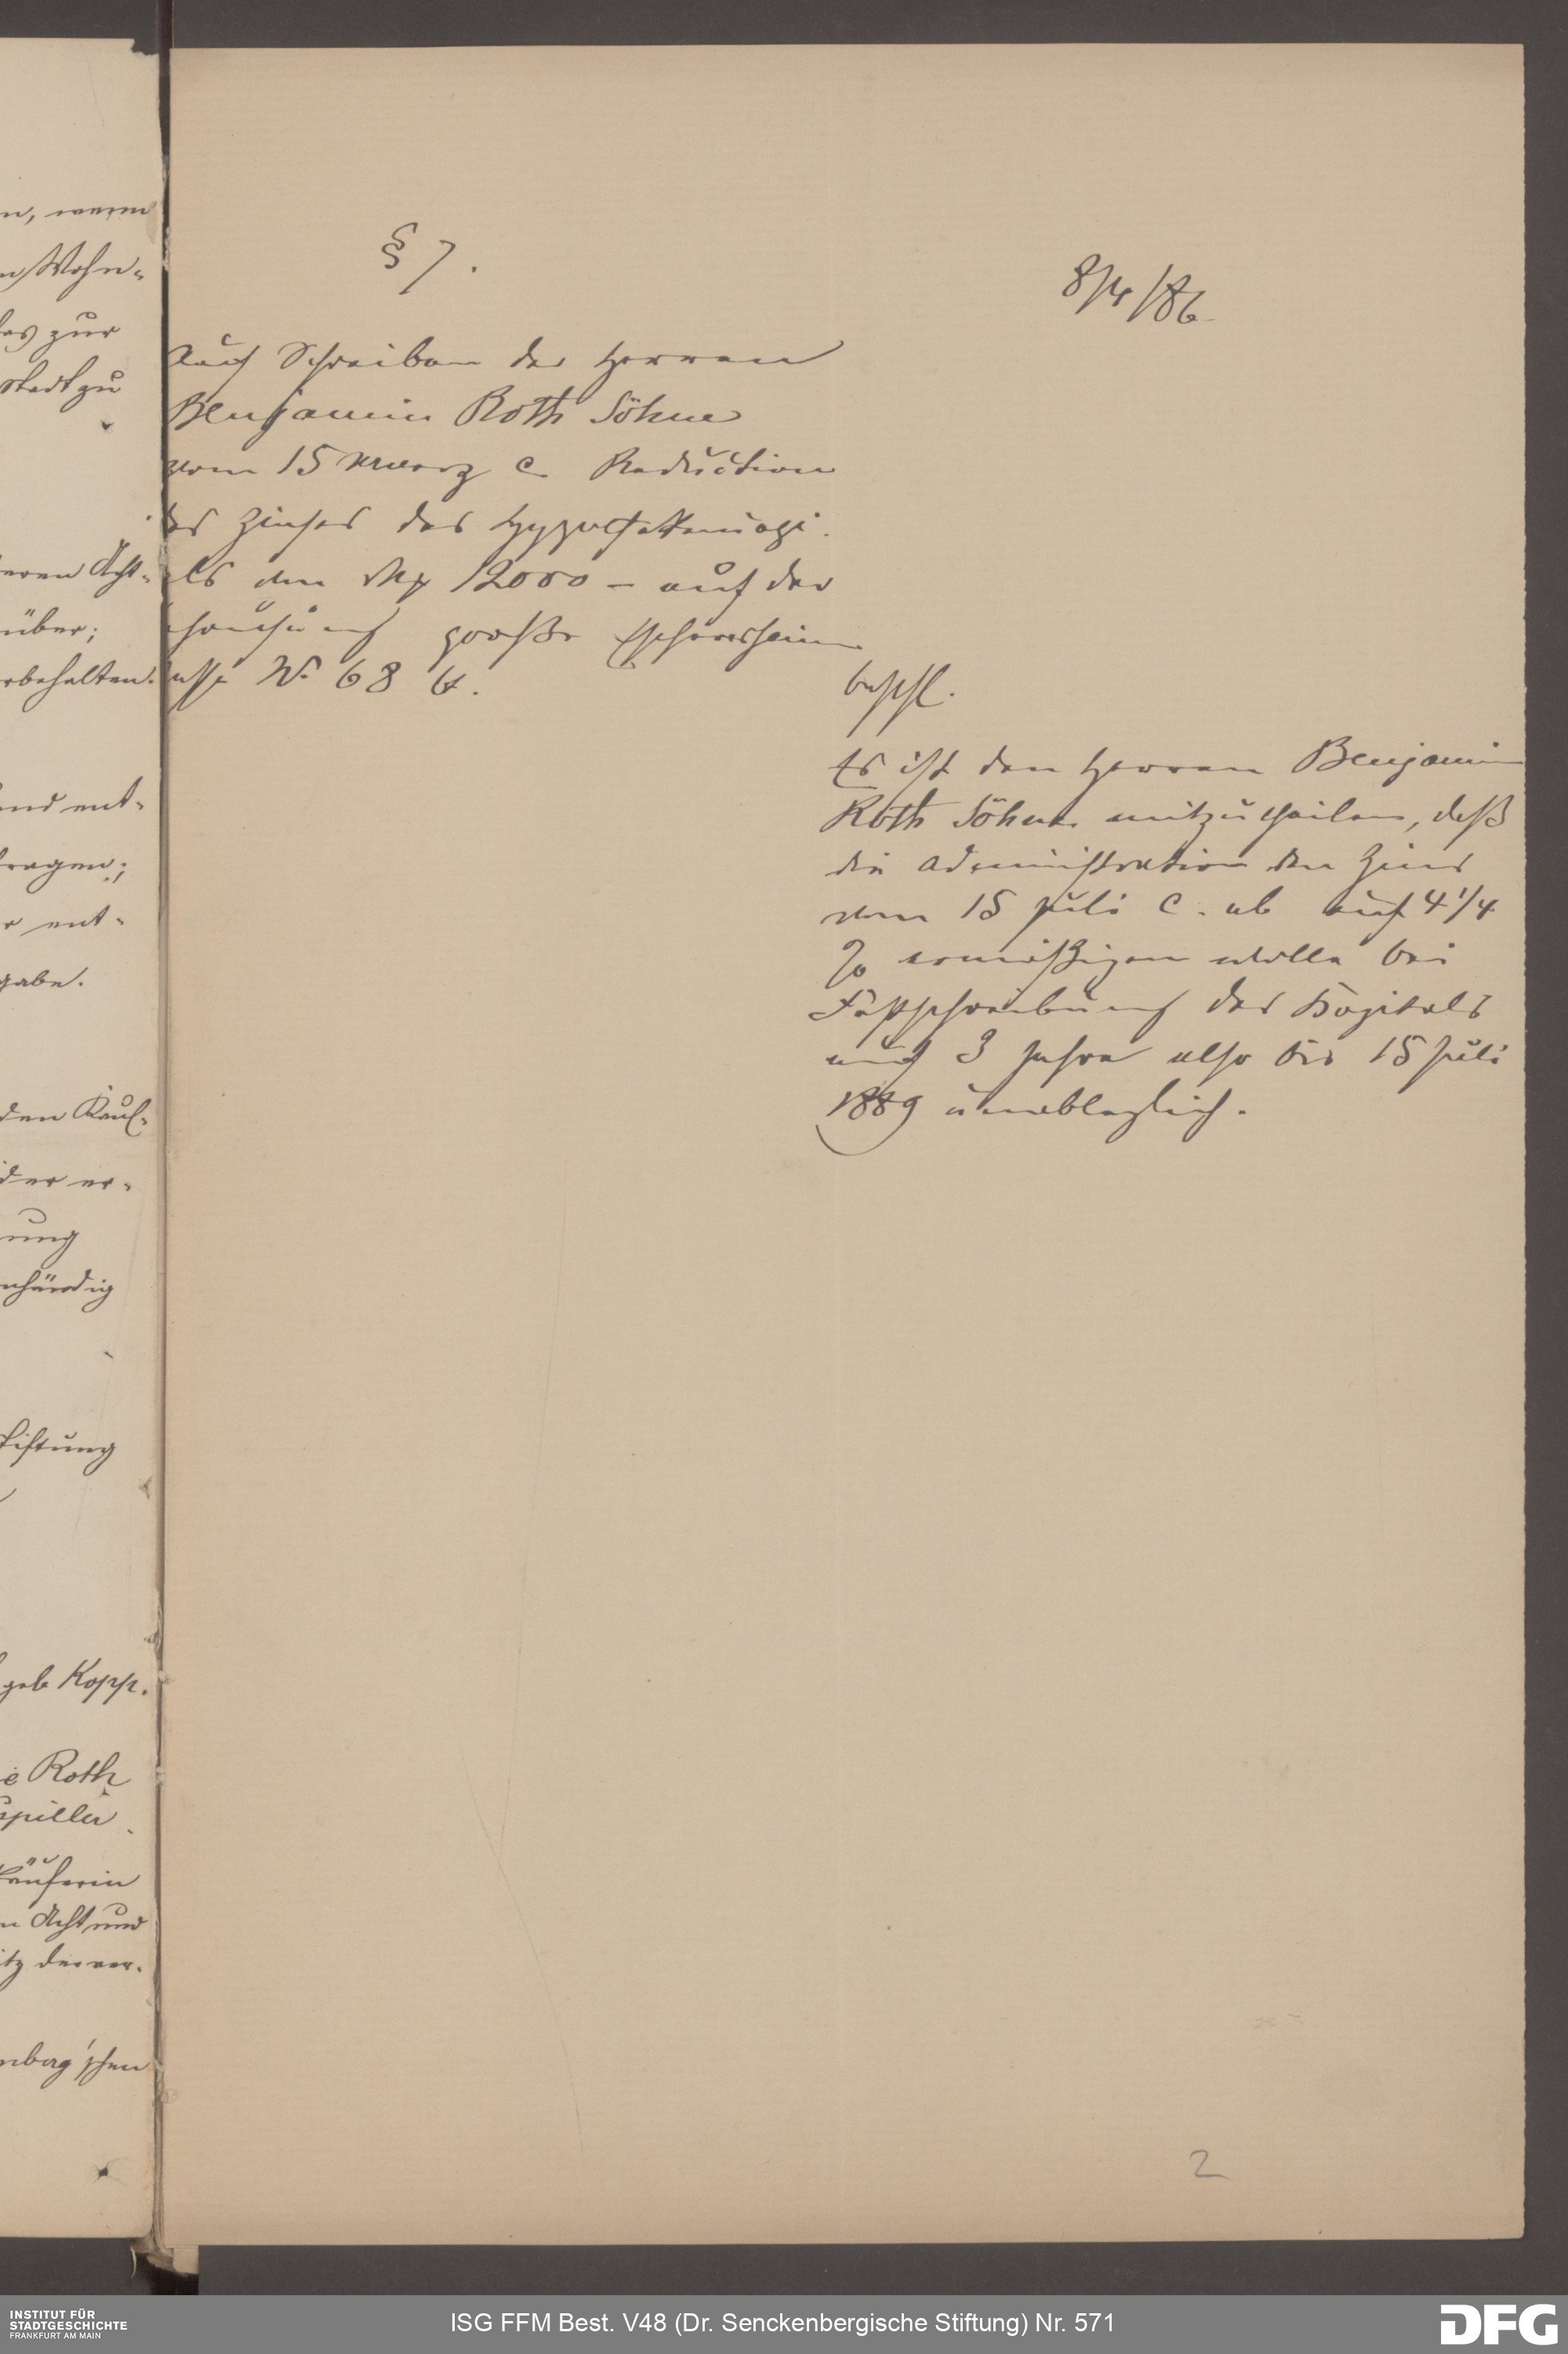 n, wenn
n Wohn-
es zur
stadt zu
eren Acht-
über;
rbehalten.
und ent-
tragen;
r ent-
gabe.
den Kauf-
der er-
ung
nhändig
tiftung
geb Kopp.
e Roth
Käuferin
n Acht und
itz der ver-
nberg'schen
§ 7.
8/4/86
Auf Schreiben der Herren
Benjamin Roth Söhne
vom 15 Maerz c Reduction
des Zinses des Hypothekencapi-
als von Mk 12000 – auf der
hausung große Eschersheim
asse No 68 b.
beschl.
Es ist den Herren Benjamin
Roth Söhne mitzutheilen, daß
die Administration den Zins
vom 15 Juli c. ab auf 4 1/4
% ermäßigen wolle bei
Festschreibung des Kapitals
auf 3 Jahre also bis 15 Juli
1889 unablöslich.
2
INSTITUT FÜR
STADTGESCHICHTE
FRANKFURT AM MAIN
ISG FFM Best. V48 (Dr. Senckenbergische Stiftung) Nr. 571
DFG